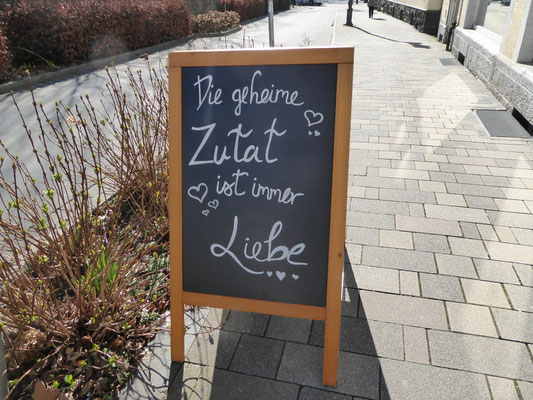 Die geheime
Zutat
ist immer
Liebe